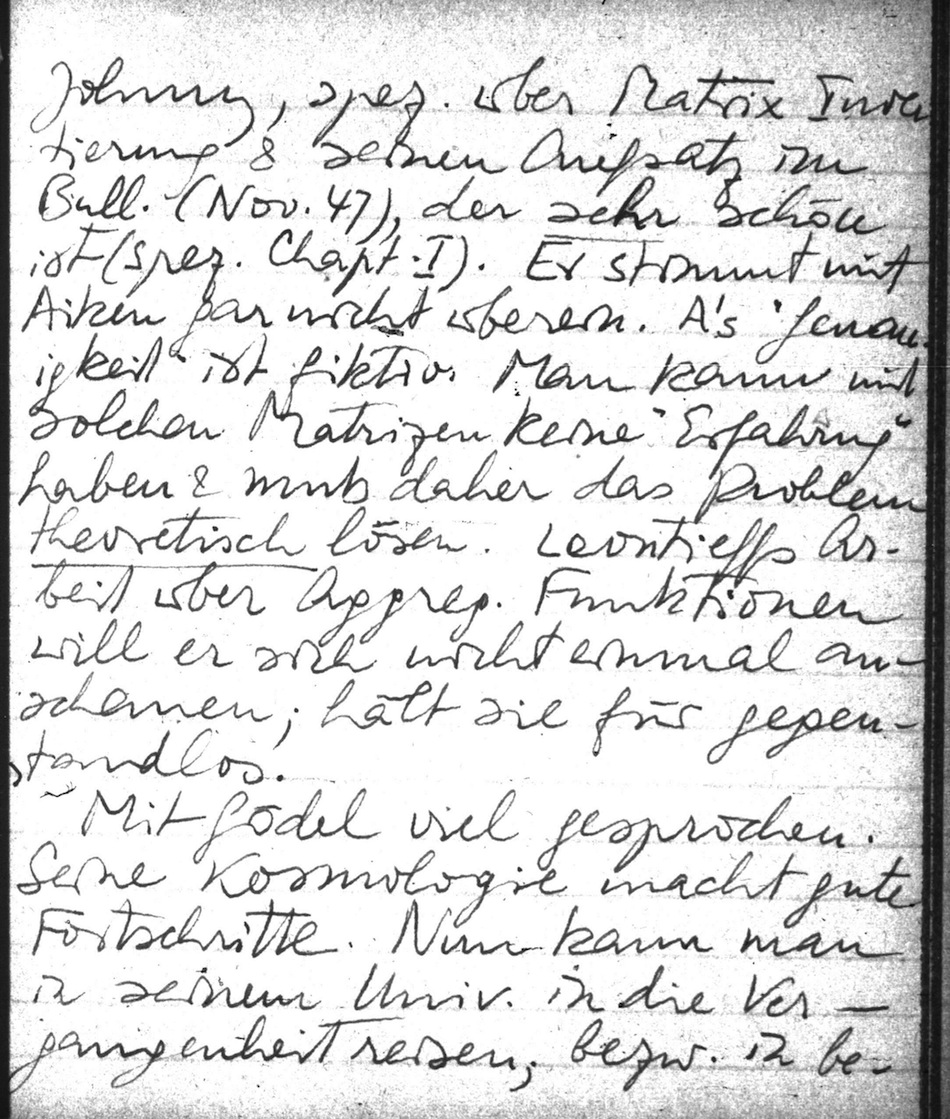 Johnny, spez. über Matrix Inver
tierung & seinen Aufsatz im
Bull. (Nov. 47), der sehr schön
ist (spez. Chapt. I). Er stimmt mit
Aiken gar nicht überein. A's "Genau-
igkeit" ist fiktiv. Man kann mit
solchen Matrizen keine "Erfahrung"
haben & muss daher das Problem
theoretisch lösen. Leontieffs Ar-
beit über Aggreg. Funktionen
will er sich nicht einmal an-
schauen; hält sie für gegen-
standlos.
Mit Gödel viel gesprochen.
Seine Kosmologie macht gute
Fortschritte. Nun kann man
in seinem Univ. in die Ver-
gangenheit reisen, bezw. in be-